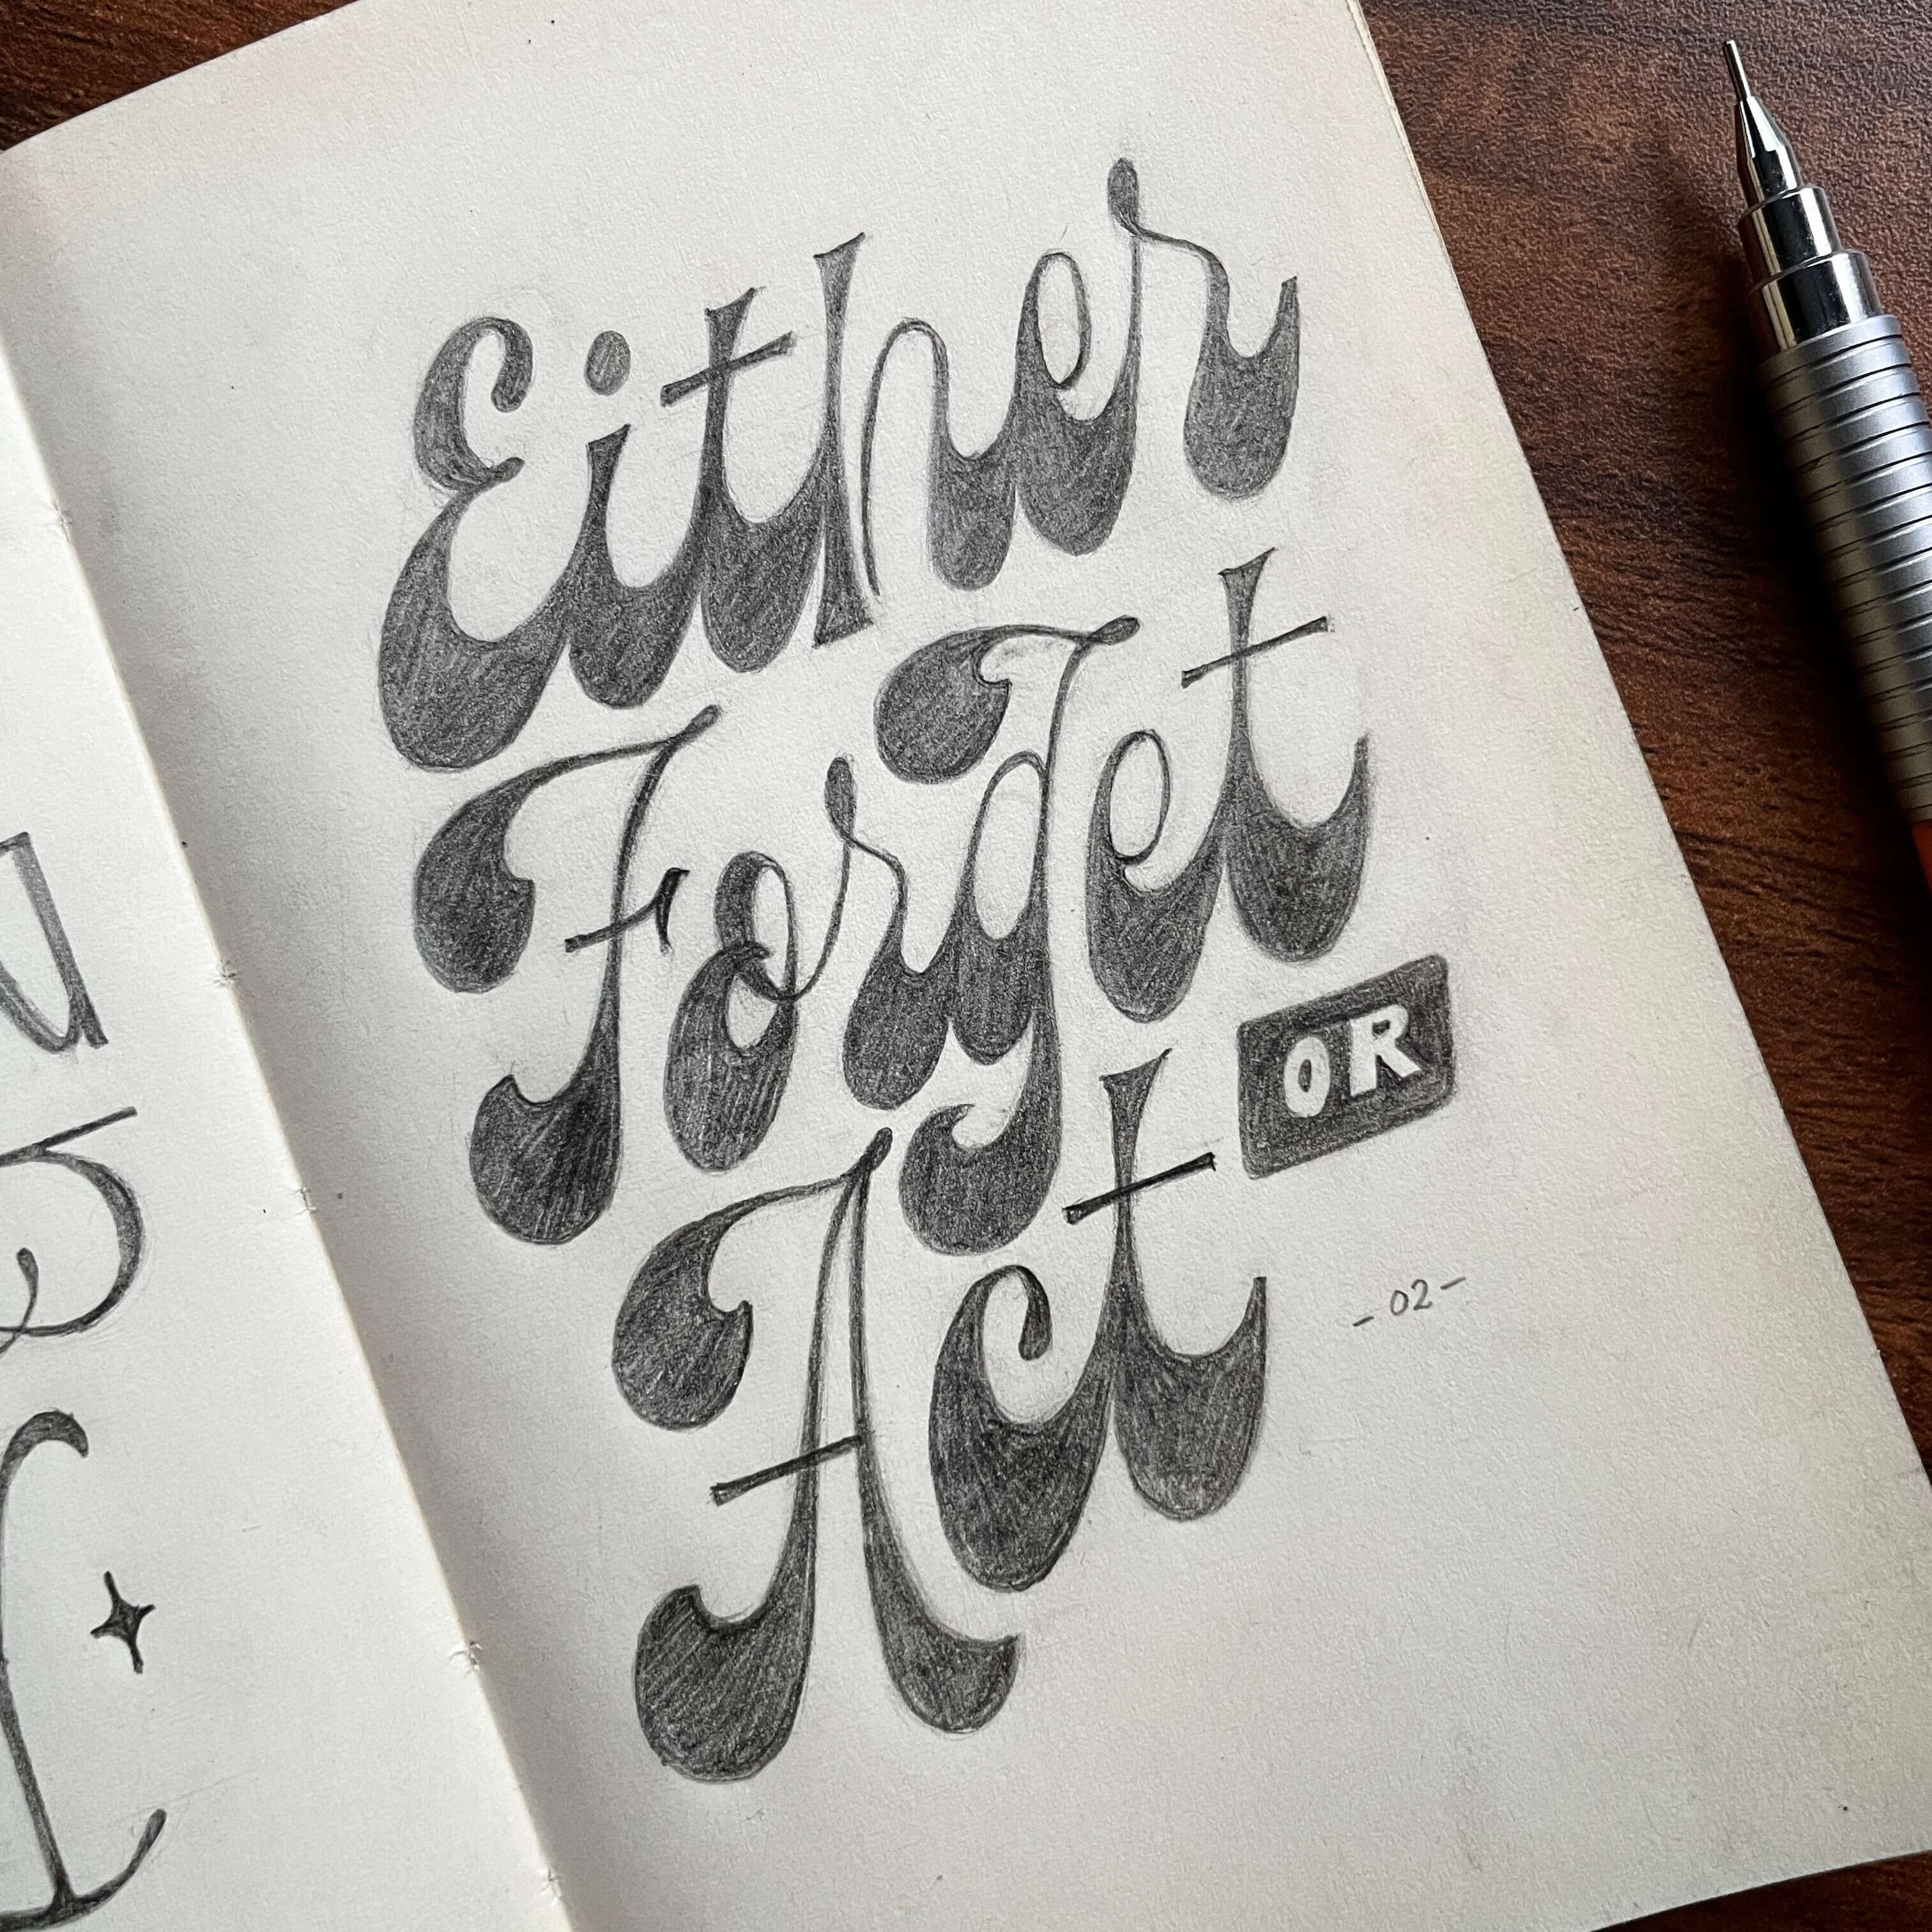 Either
Forget
OR
Act
- 02 -